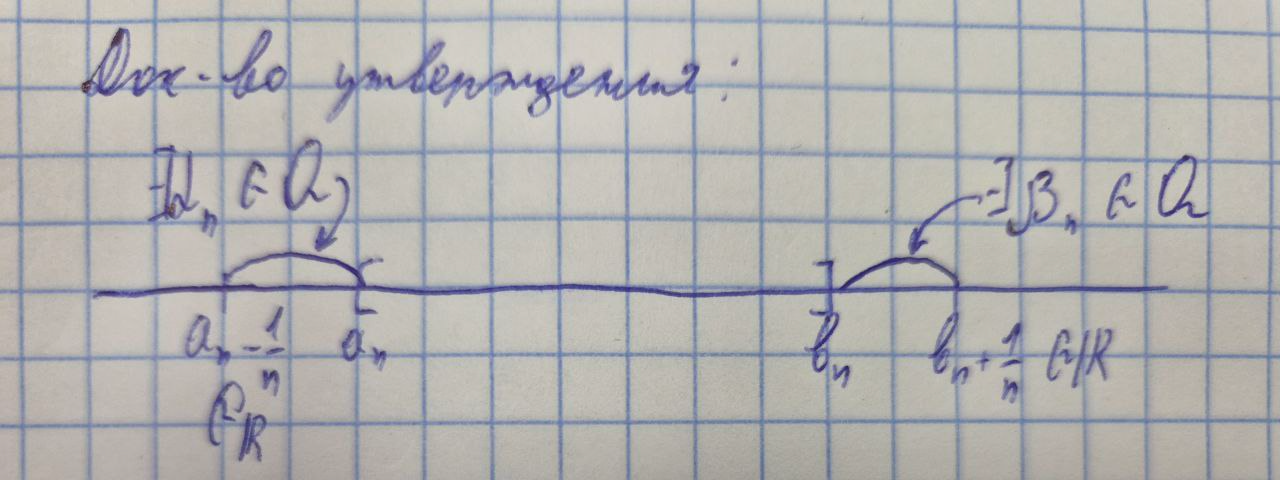 Док-во утверждения:
∃α_n ∈ Q ∃β_n ∈ Q
[ ]
a_n - 1/n a_n b_n b_n + 1/n ∈ ℝ
∈ ℝ